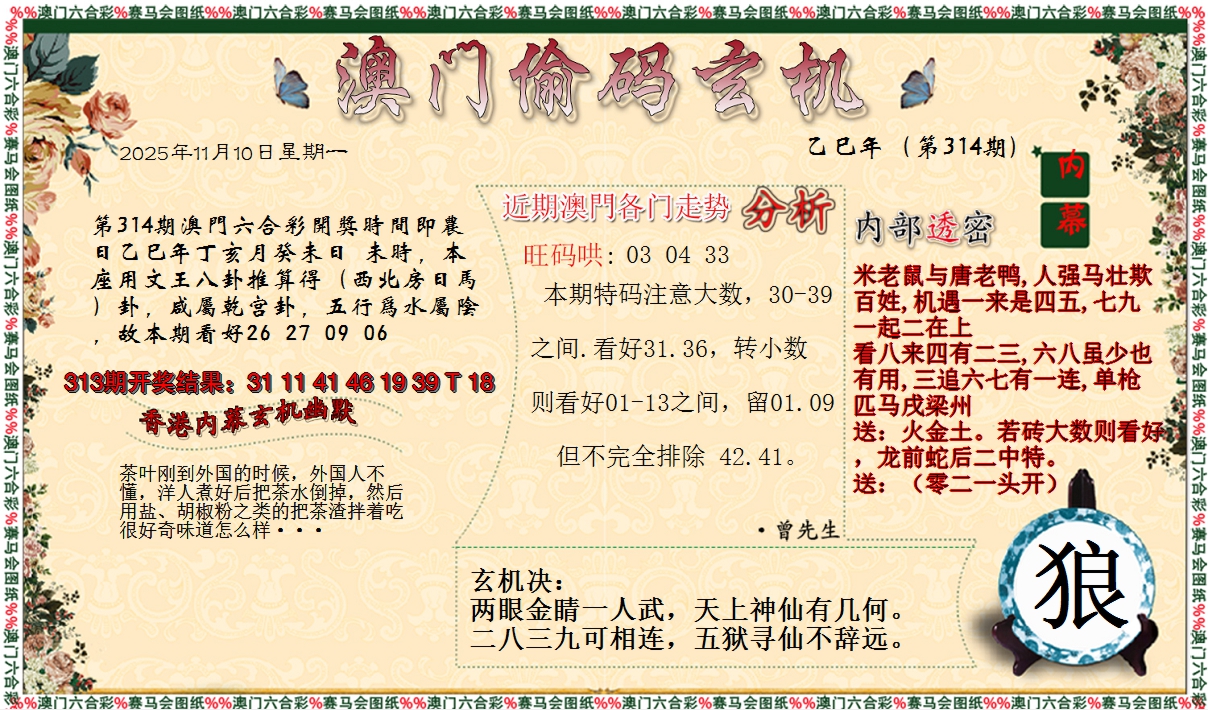 %%澳门六合彩%赛马会图纸%%澳门六合彩%赛马会图纸%%澳门六合彩%赛马会图纸%%澳门六合彩%赛马会图纸%%澳门六合彩%赛马会图纸%%澳门六合彩%赛马会图纸%%
澳门偷码玄机
2025年11月10日星期一
乙巳年（第314期）
内幕
第314期澳門六合彩開獎時間即農
日乙巳年丁亥月癸未日 未時，本
座用文王八卦推算得（西北房日馬
）卦，咸屬乾宫卦，五行爲水屬陰
，故本期看好26 27 09 06
313期开奖结果：31 11 41 46 19 39 T 18
香港内幕玄机幽默
茶叶刚到外国的时候，外国人不
懂，洋人煮好后把茶水倒掉，然后
用盐、胡椒粉之类的把茶渣拌着吃
很好奇味道怎么样···
近期澳門各门走势 分析
旺码哄: 03 04 33
本期特码注意大数，30-39
之间.看好31.36，转小数
则看好01-13之间，留01.09
但不完全排除 42.41。
·曾先生
内部透密
米老鼠与唐老鸭,人强马壮欺
百姓,机遇一来是四五,七九
一起二在上
看八来四有二三,六八虽少也
有用,三追六七有一连,单枪
匹马戌梁州
送：火金土。若砖大数则看好
，龙前蛇后二中特。
送：（零二一头开）
玄机决：
两眼金睛一人武，天上神仙有几何。
二八三九可相连，五狱寻仙不辞远。
狼
%%澳门六合彩%赛马会图纸%%澳门六合彩%赛马会图纸%%澳门六合彩%赛马会图纸%%澳门六合彩%赛马会图纸%%澳门六合彩%赛马会图纸%%澳门六合彩%赛马会图纸%%